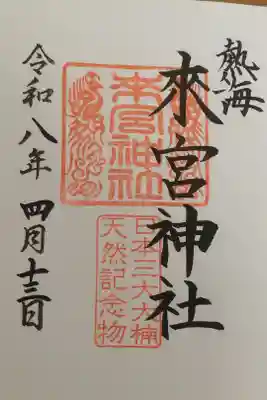 熱海
來宮神社
日本三大大楠
天然記念物
令和八年 四月十三日